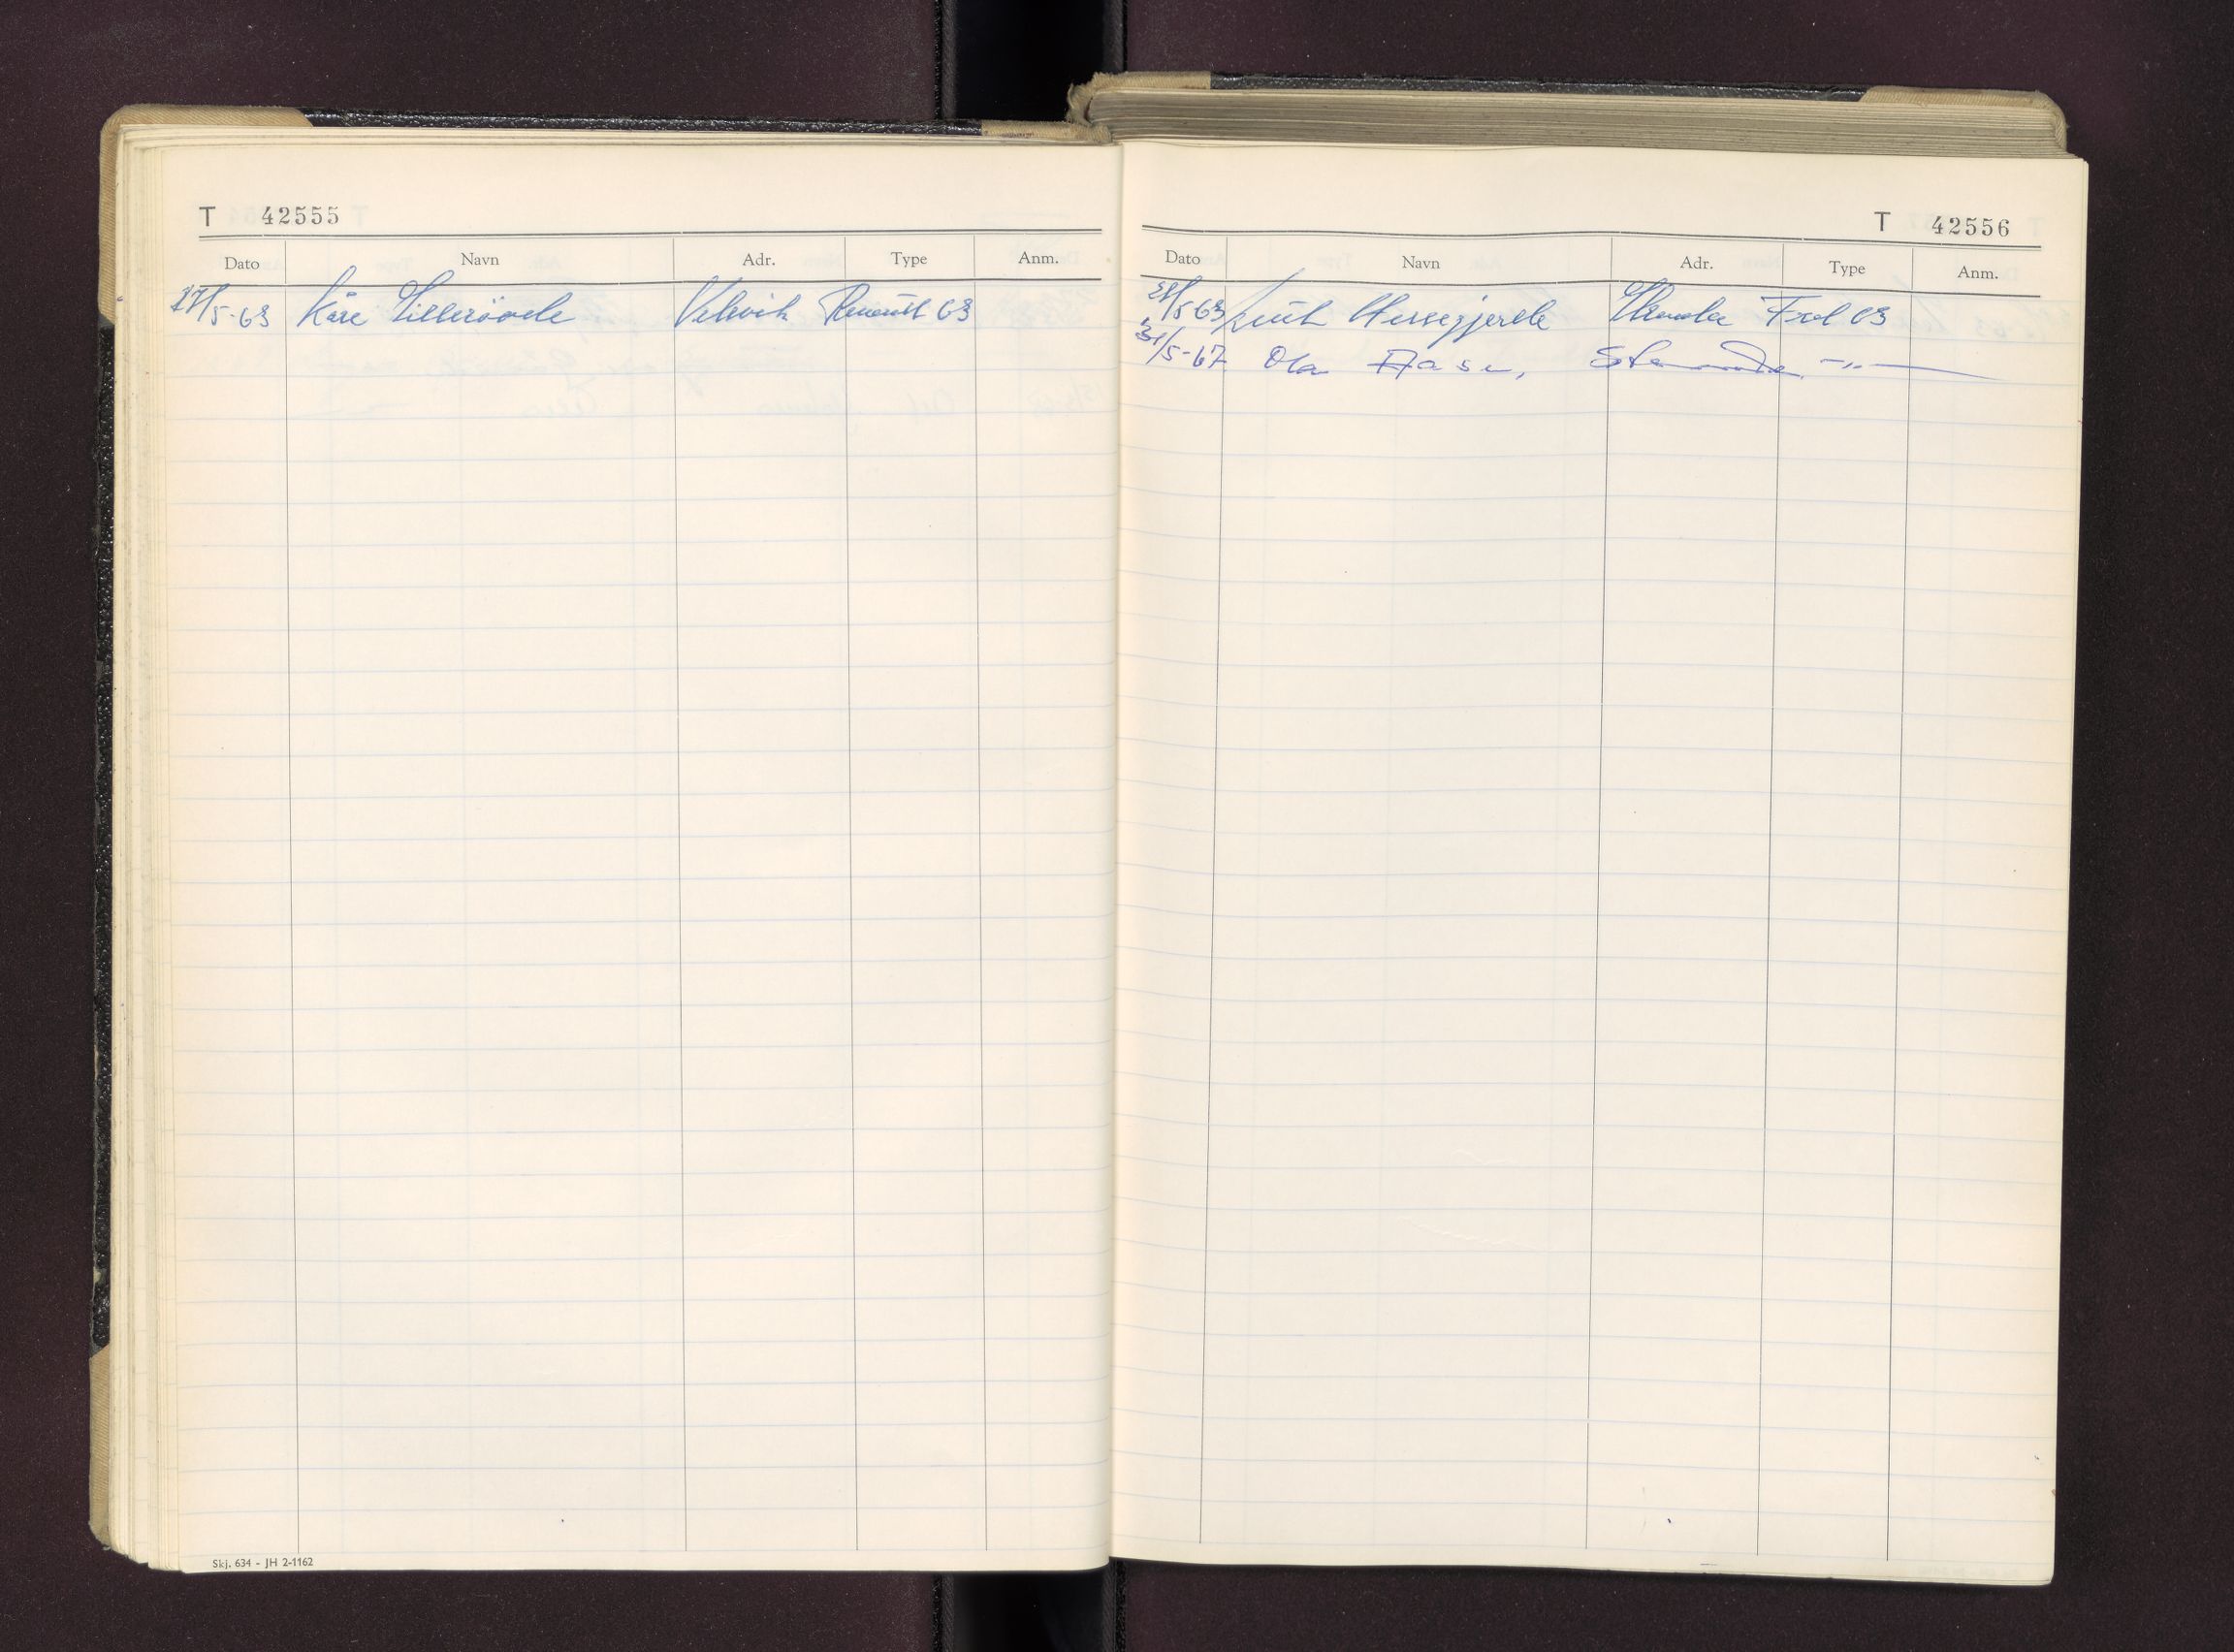 T 42555
Dato Navn Adr. Type Anm.
27/5-63 Kåre Renault 63
Skj. 634 - JH 2-1162
T 42556
Dato Navn Adr. Type Anm.
/5 63 Hessegjerde Skodje Ford 63
31/5-67 Ola Aase, -"-